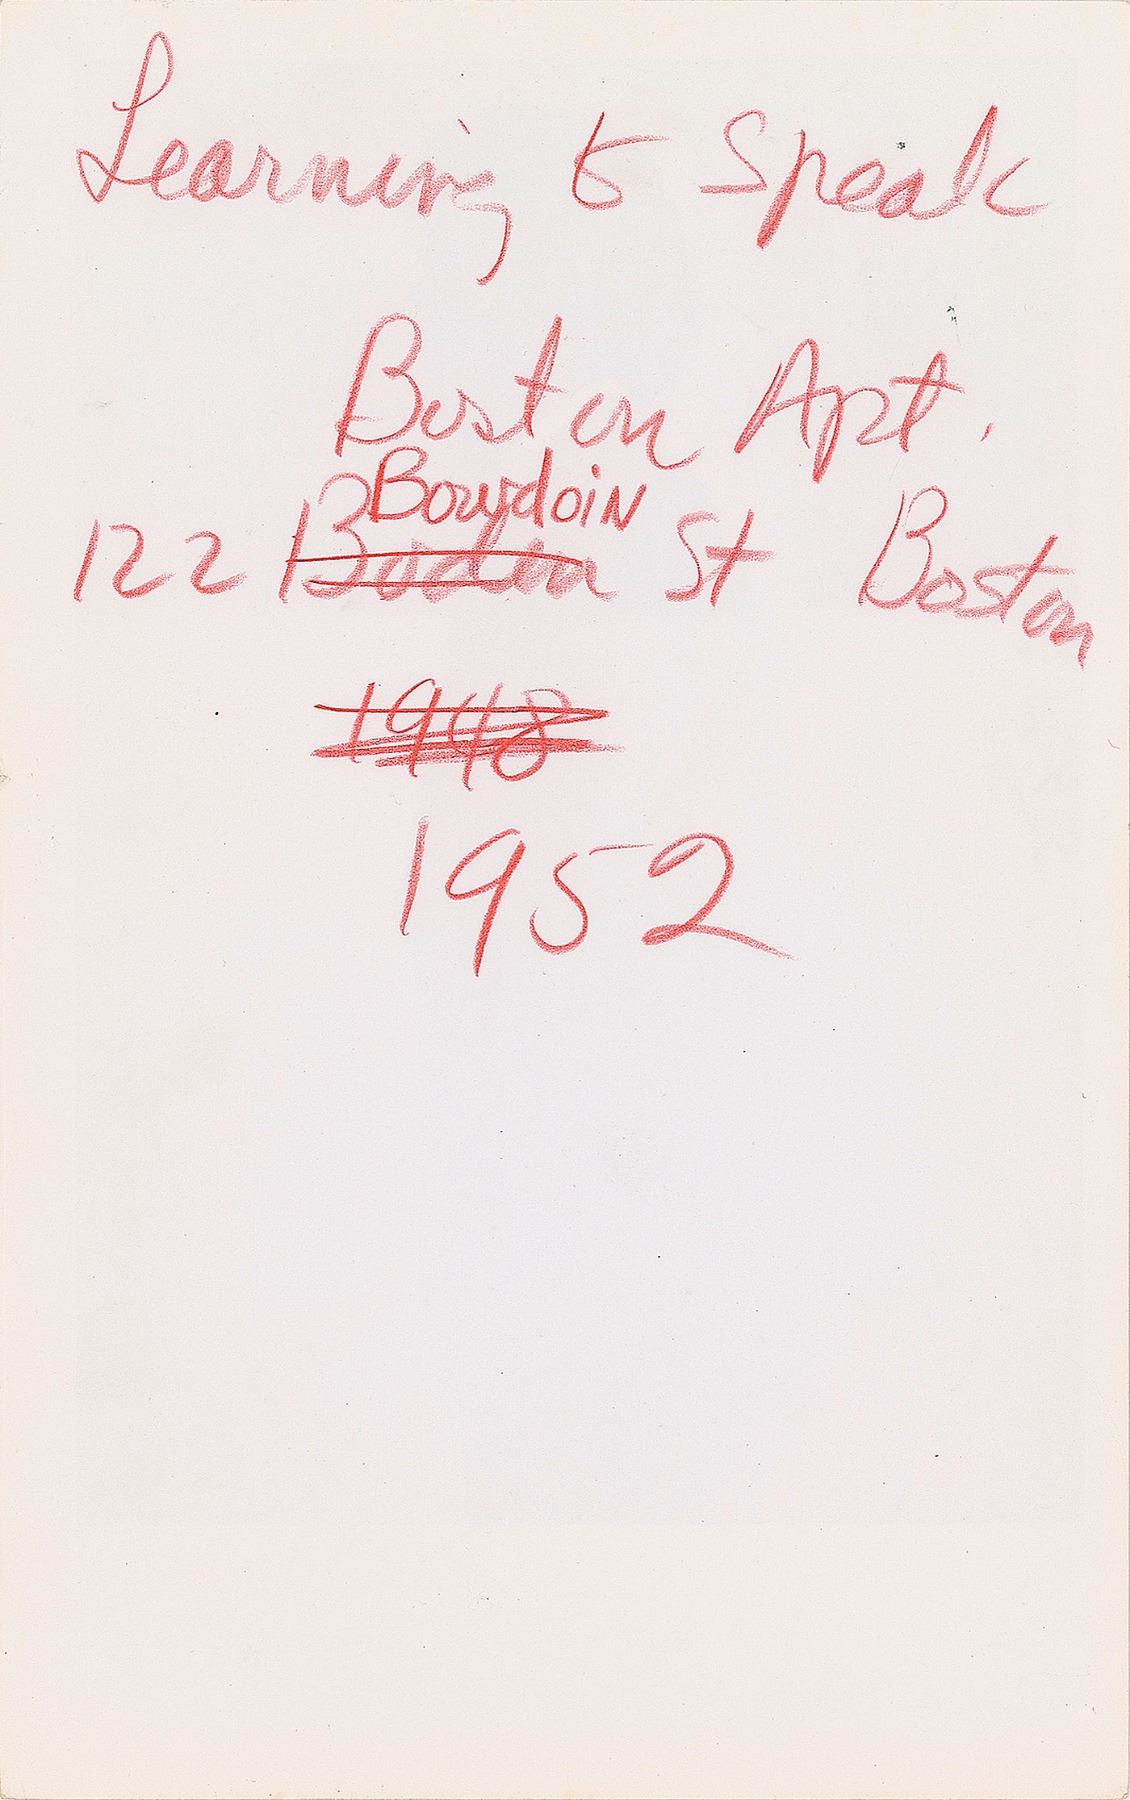 Learning to Speak
Boston Apt.
Bowdoin
122 Boden St Boston
1948
1952